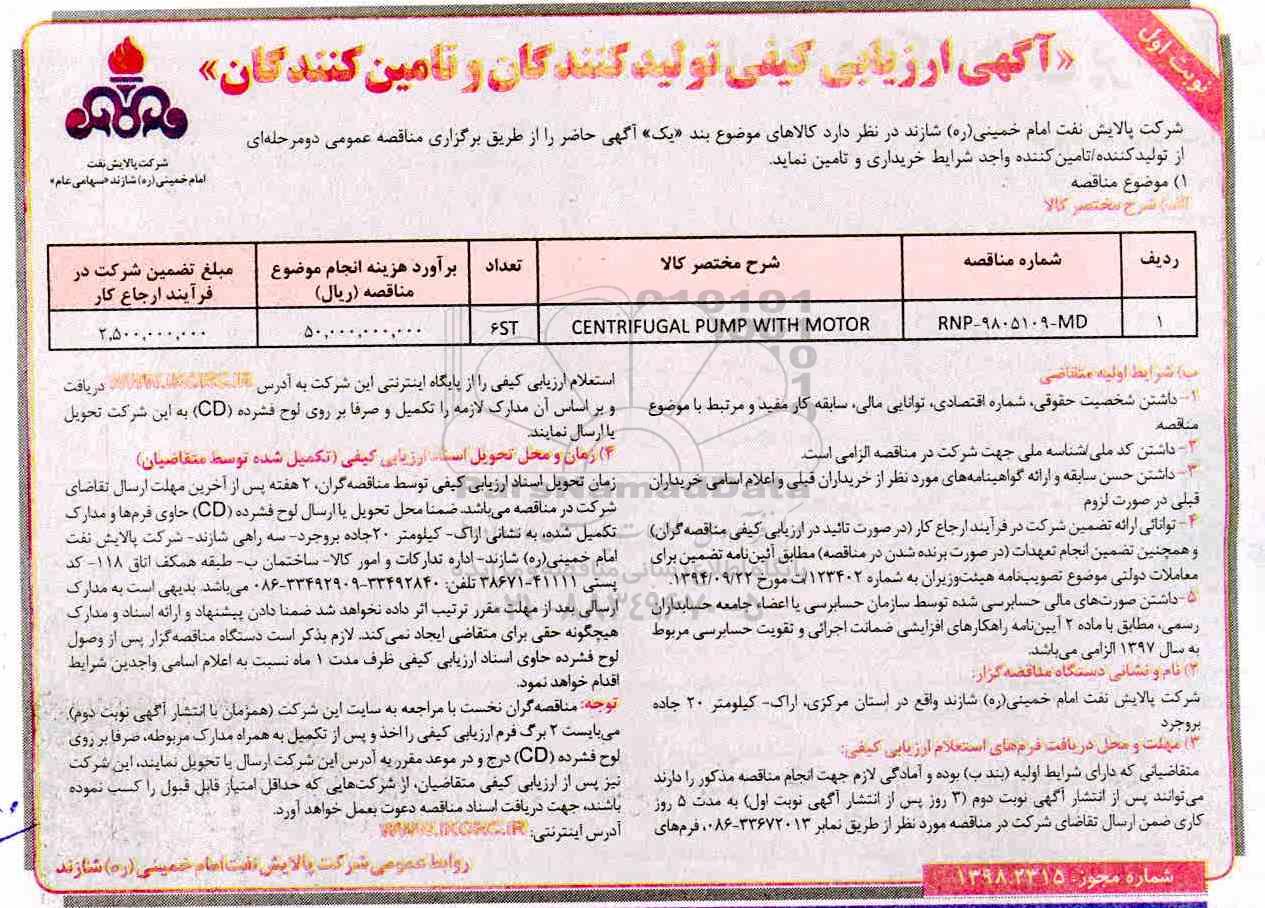 نوبت اول
«آگهی ارزیابی کیفی تولیدکنندگان و تامین‌کنندگان»
شرکت پالایش نفت
امام خمینی(ره) شازند «سهامی عام»
شرکت پالایش نفت امام خمینی(ره) شازند در نظر دارد کالاهای موضوع بند «یک» آگهی حاضر را از طریق برگزاری مناقصه عمومی دومرحله‌ای
از تولیدکننده/تامین‌کننده واجد شرایط خریداری و تامین نماید.
۱) موضوع مناقصه
الف) شرح مختصر کالا
ردیف شماره مناقصه شرح مختصر کالا تعداد برآورد هزینه انجام موضوع مناقصه (ریال) مبلغ تضمین شرکت در فرآیند ارجاع کار
۱ RNP-۹۸۰۵۱۰۹-MD CENTRIFUGAL PUMP WITH MOTOR ۶ST ۵۰,۰۰۰,۰۰۰,۰۰۰ ۲,۵۰۰,۰۰۰,۰۰۰
ب) شرایط اولیه متقاضی
۱- داشتن شخصیت حقوقی، شماره اقتصادی، توانایی مالی، سابقه کار مفید و مرتبط با موضوع
مناقصه.
۲- داشتن کد ملی/شناسه ملی جهت شرکت در مناقصه الزامی است.
۳- داشتن حسن سابقه و ارائه گواهینامه‌های مورد نظر از خریداران قبلی و اعلام اسامی خریداران
قبلی در صورت لزوم
۴- توانائی ارائه تضمین شرکت در فرآیند ارجاع کار (در صورت تائید در ارزیابی کیفی مناقصه‌گران)
و همچنین تضمین انجام تعهدات (در صورت برنده شدن در مناقصه) مطابق آئین‌نامه تضمین برای
معاملات دولتی موضوع تصویب‌نامه هیئت‌وزیران به شماره ۱۲۳۴۰۲/ت مورخ ۱۳۹۴/۰۹/۲۲.
۵- داشتن صورت‌های مالی حسابرسی شده توسط سازمان حسابرسی یا اعضاء جامعه حسابداران
رسمی، مطابق با ماده ۲ آیین‌نامه راهکارهای افزایشی ضمانت اجرائی و تقویت حسابرسی مربوط
به سال ۱۳۹۷ الزامی می‌باشد.
۲) نام و نشانی دستگاه مناقصه‌گزار:
شرکت پالایش نفت امام خمینی(ره) شازند واقع در استان مرکزی، اراک- کیلومتر ۲۰ جاده
بروجرد
۳) مهلت و محل دریافت فرم‌های استعلام ارزیابی کیفی:
متقاضیانی که دارای شرایط اولیه (بند ب) بوده و آمادگی لازم جهت انجام مناقصه مذکور را دارند
می‌توانند پس از انتشار آگهی نوبت دوم (۳ روز پس از انتشار آگهی نوبت اول) به مدت ۵ روز
کاری ضمن ارسال تقاضای شرکت در مناقصه مورد نظر از طریق نمابر ۳۳۶۷۲۰۱۳-۰۸۶، فرم‌های
استعلام ارزیابی کیفی را از پایگاه اینترنتی این شرکت به آدرس WWW.IKORC.IR دریافت
و بر اساس آن مدارک لازمه را تکمیل و صرفا بر روی لوح فشرده (CD) به این شرکت تحویل
یا ارسال نمایند.
۴) زمان و محل تحویل اسناد ارزیابی کیفی (تکمیل شده توسط متقاضیان)
زمان تحویل اسناد ارزیابی کیفی توسط مناقصه‌گران، ۲ هفته پس از آخرین مهلت ارسال تقاضای
شرکت در مناقصه می‌باشد. ضمنا محل تحویل یا ارسال لوح فشرده (CD) حاوی فرم‌ها و مدارک
تکمیل شده، به نشانی: اراک- کیلومتر ۲۰ جاده بروجرد- سه راهی شازند- شرکت پالایش نفت
امام خمینی(ره) شازند- اداره تدارکات و امور کالا- ساختمان ب- طبقه همکف اتاق ۱۱۸- کد
پستی ۴۱۱۱۱-۳۸۶۷۱ تلفن: ۳۳۴۹۲۸۴۰-۳۳۴۹۲۹۰۹-۰۸۶ می‌باشد. بدیهی است به مدارک
ارسالی بعد از مهلت مقرر ترتیب اثر داده نخواهد شد ضمنا دادن پیشنهاد و ارائه اسناد و مدارک
هیچگونه حقی برای متقاضی ایجاد نمی‌کند. لازم بذکر است دستگاه مناقصه‌گزار پس از وصول
لوح فشرده حاوی اسناد ارزیابی کیفی ظرف مدت ۱ ماه نسبت به اعلام اسامی واجدین شرایط
اقدام خواهد نمود.
توجه: مناقصه‌گران نخست با مراجعه به سایت این شرکت (همزمان با انتشار آگهی نوبت دوم)
می‌بایست ۲ برگ فرم ارزیابی کیفی را اخذ و پس از تکمیل به همراه مدارک مربوطه، صرفا بر روی
لوح فشرده (CD) درج و در موعد مقرر به آدرس این شرکت ارسال یا تحویل نمایند، این شرکت
نیز پس از ارزیابی کیفی متقاضیان، از شرکت‌هایی که حداقل امتیاز قابل قبول را کسب نموده
باشند، جهت دریافت اسناد مناقصه دعوت بعمل خواهد آورد.
آدرس اینترنتی: WWW.IKORC.IR
روابط عمومی شرکت پالایش نفت امام خمینی (ره) شازند
شماره مجوز: ۱۳۹۸.۲۳۱۵
ParsNamadData